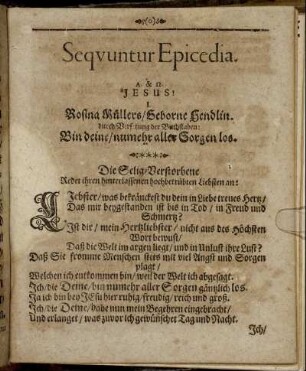 (o)
Seqvuntur Epicedia.
A & Ω.
JESUS!
I.
Rosina Müllers/ Geborne Hendlin.
durch Versetzung der Buchstaben:
Bin deine/ numehr aller Sorgen los.
Die Selig-Verstorbene
Redet ihren hinterlassenen hochbetrübten Liebsten an:
LIebster/ was bekränckest du dein in Liebe treues Hertz/
Das mir beygestanden ist bis in Tod/ in Freud und
Schmertz?
Ist dir/ mein Hertzliebster/ nicht aus des Höchsten
Wort bewust/
Daß die Welt im argen liegt/ und in Unlust ihre Lust?
Daß Sie fromme Menschen stets mit viel Angst und Sorgen
plagt/
Welchen ich entkommen bin/ weil der Welt ich abgesagt.
Ich/ die Deine/ bin numehr aller Sorgen gäntzlich los.
Ja ich bin bey JEsu hier ruhig/ freudig/ reich und groß.
Ich/ die Deine/ habe nun mein Begehren eingebracht/
Und erlanget/ was zuvor ich gewünschet Tag und Nacht.
Ich/